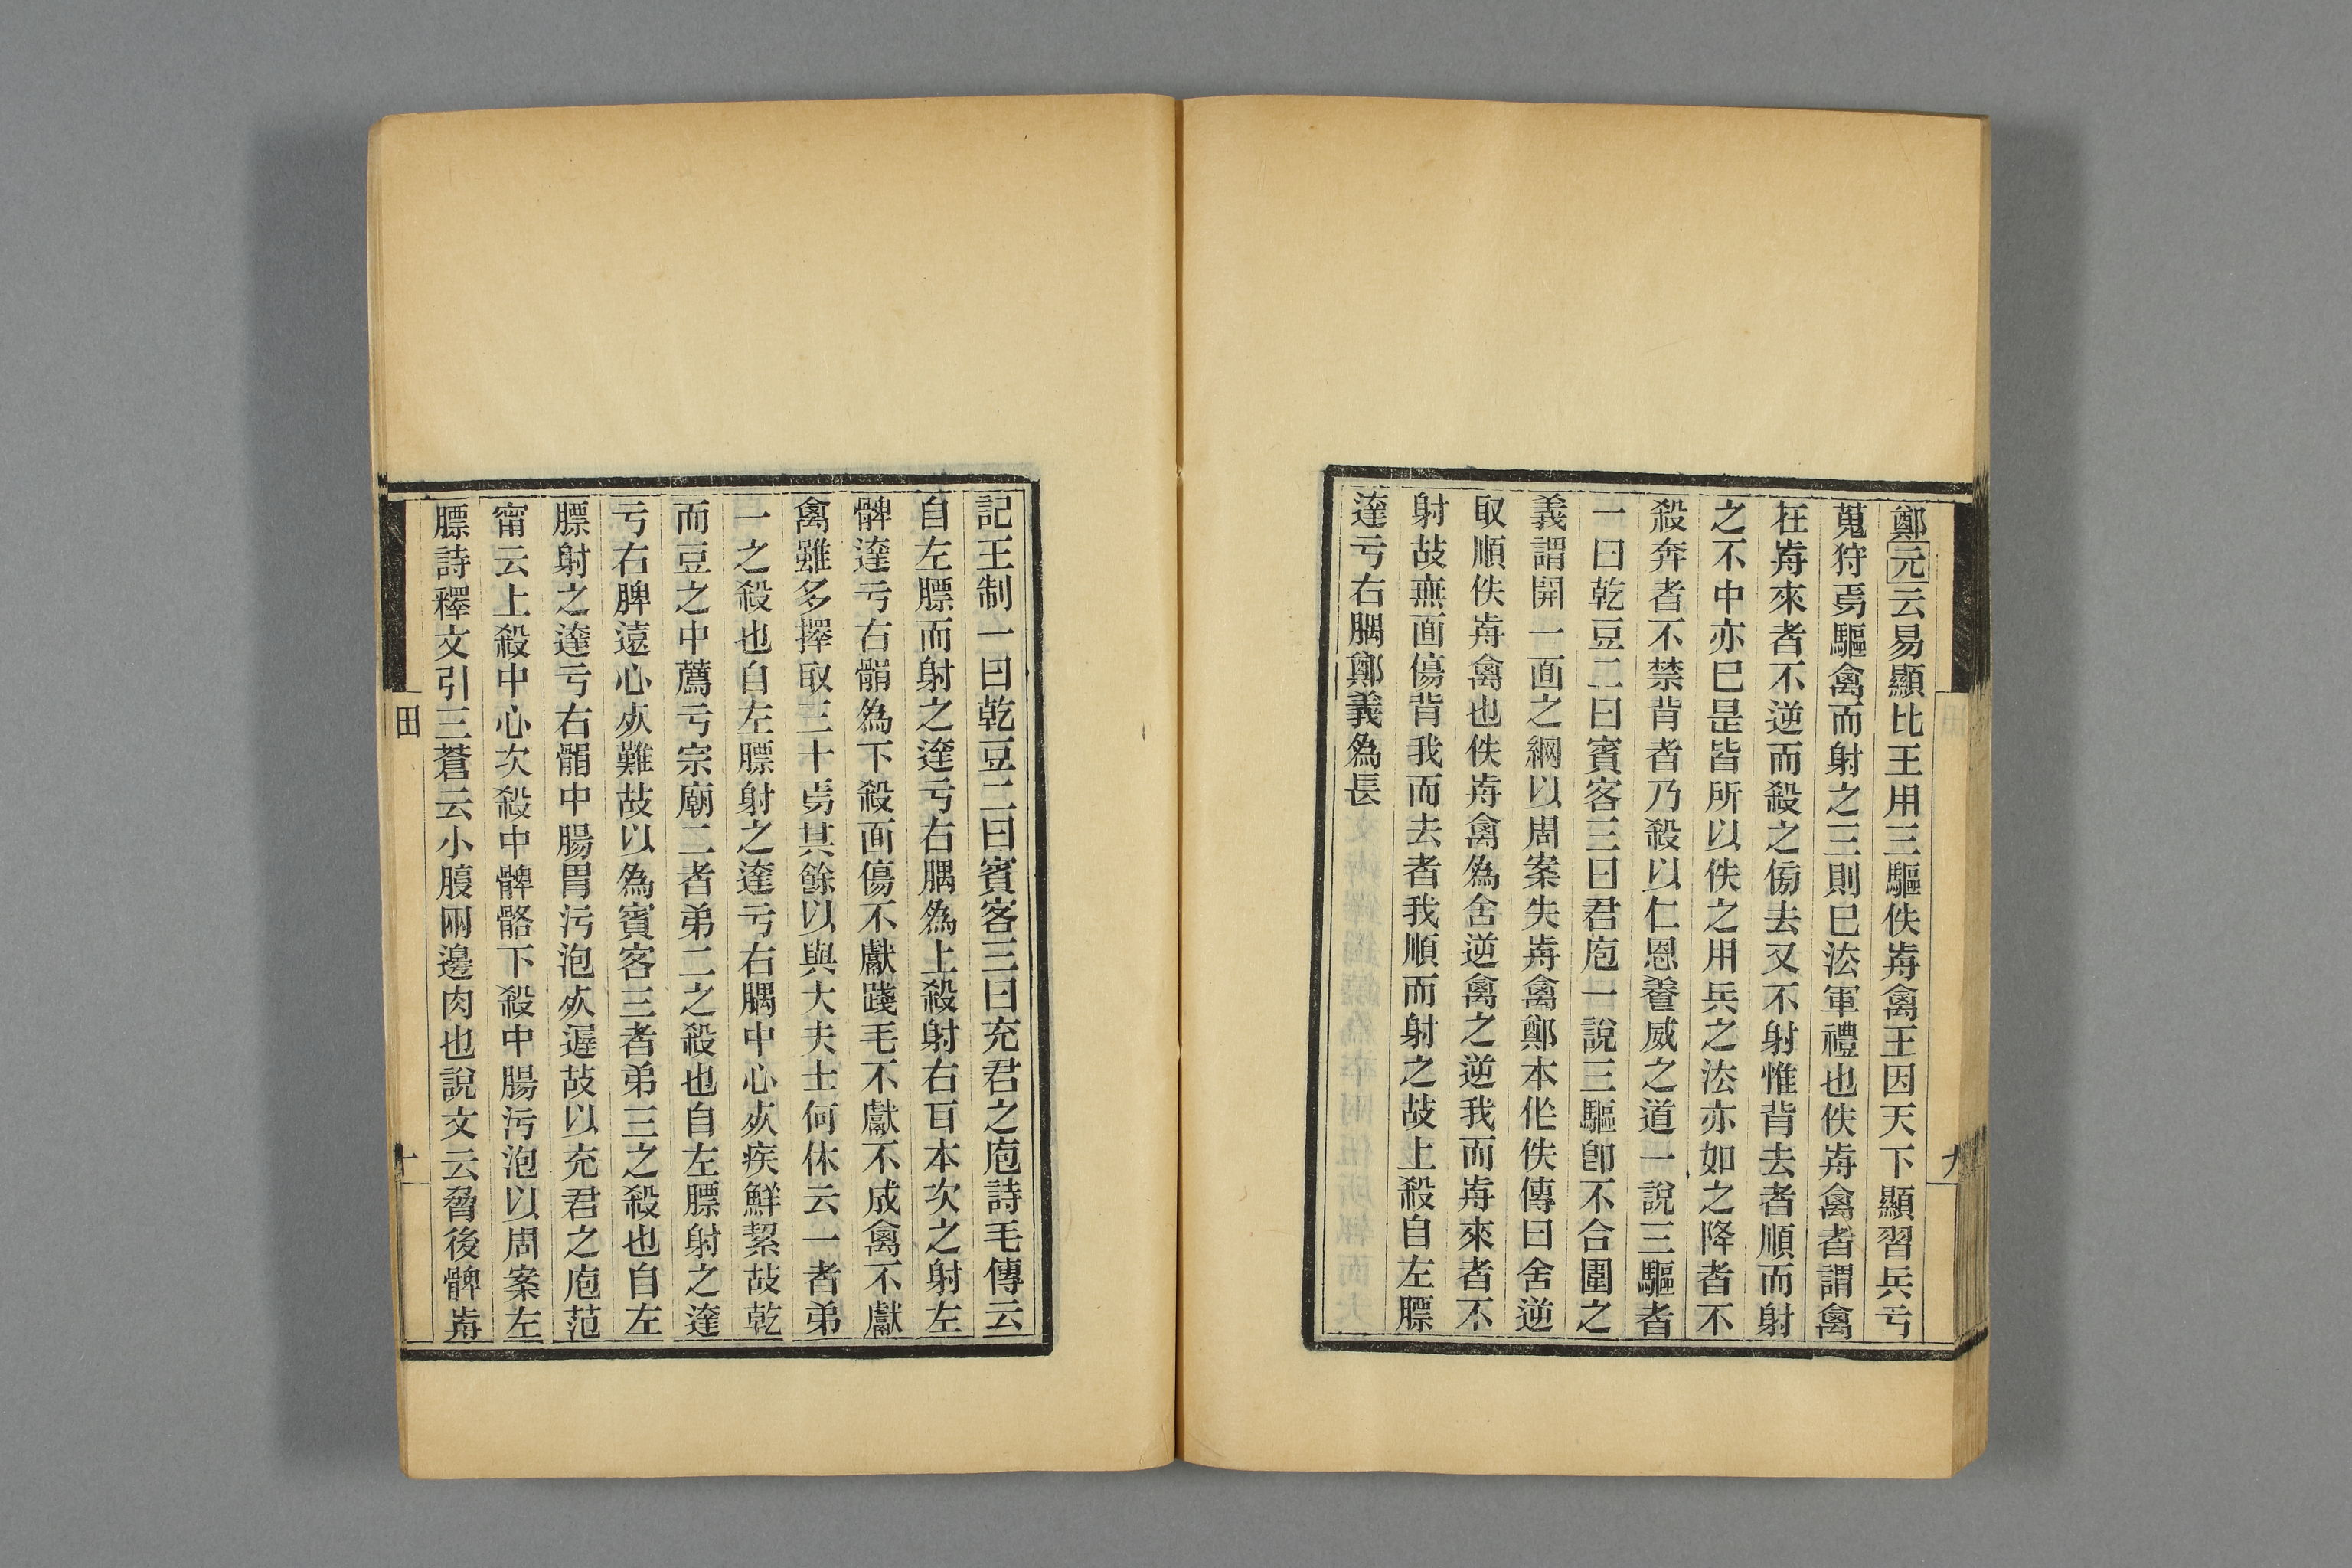 鄭元云易顯比王用三驅佚歬禽王因天下顯習兵亏
蒐狩焉驅禽而射之三則已法軍禮也佚歬禽者謂禽
在歬來者不逆而殺之傍去又不射惟背去者順而射
之不中亦已是皆所以佚之用兵之法亦如之降者不
殺奔者不禁背者乃殺以仁恩養威之道一說三驅者
一曰乾豆二曰賓客三曰君庖一說三驅卽不合圍之
義謂開一面之網以周案失歬禽鄭本作佚傳曰舍逆
取順佚歬禽也佚歬禽爲舍逆禽之逆我而歬來者不
射故無面傷背我而去者我順而射之故上殺自左膘
達亏右腢鄭義爲長
九
記王制一曰乾豆二曰賓客三曰充君之庖詩毛傳云
自左膘而射之達亏右腢爲上殺射右耳本次之射左
髀達亏右䯚爲下殺面傷不獻踐毛不獻不成禽不獻
禽雖多擇取三十焉其餘以與大夫士何休云一者弟
一之殺也自左膘射之達亏右腢中心𣦸疾鮮絜故乾
而豆之中薦亏宗廟二者弟二之殺也自左膘射之達
亏右脾遠心𣦸難故以爲賓客三者弟三之殺也自左
膘射之達亏右䯚中腸胃污泡𣦸遲故以充君之庖范
甯云上殺中心次殺中髀骼下殺中腸污泡以周案左
膘詩釋文引三蒼云小腹兩邊肉也說文云脅後髀歬
田
十